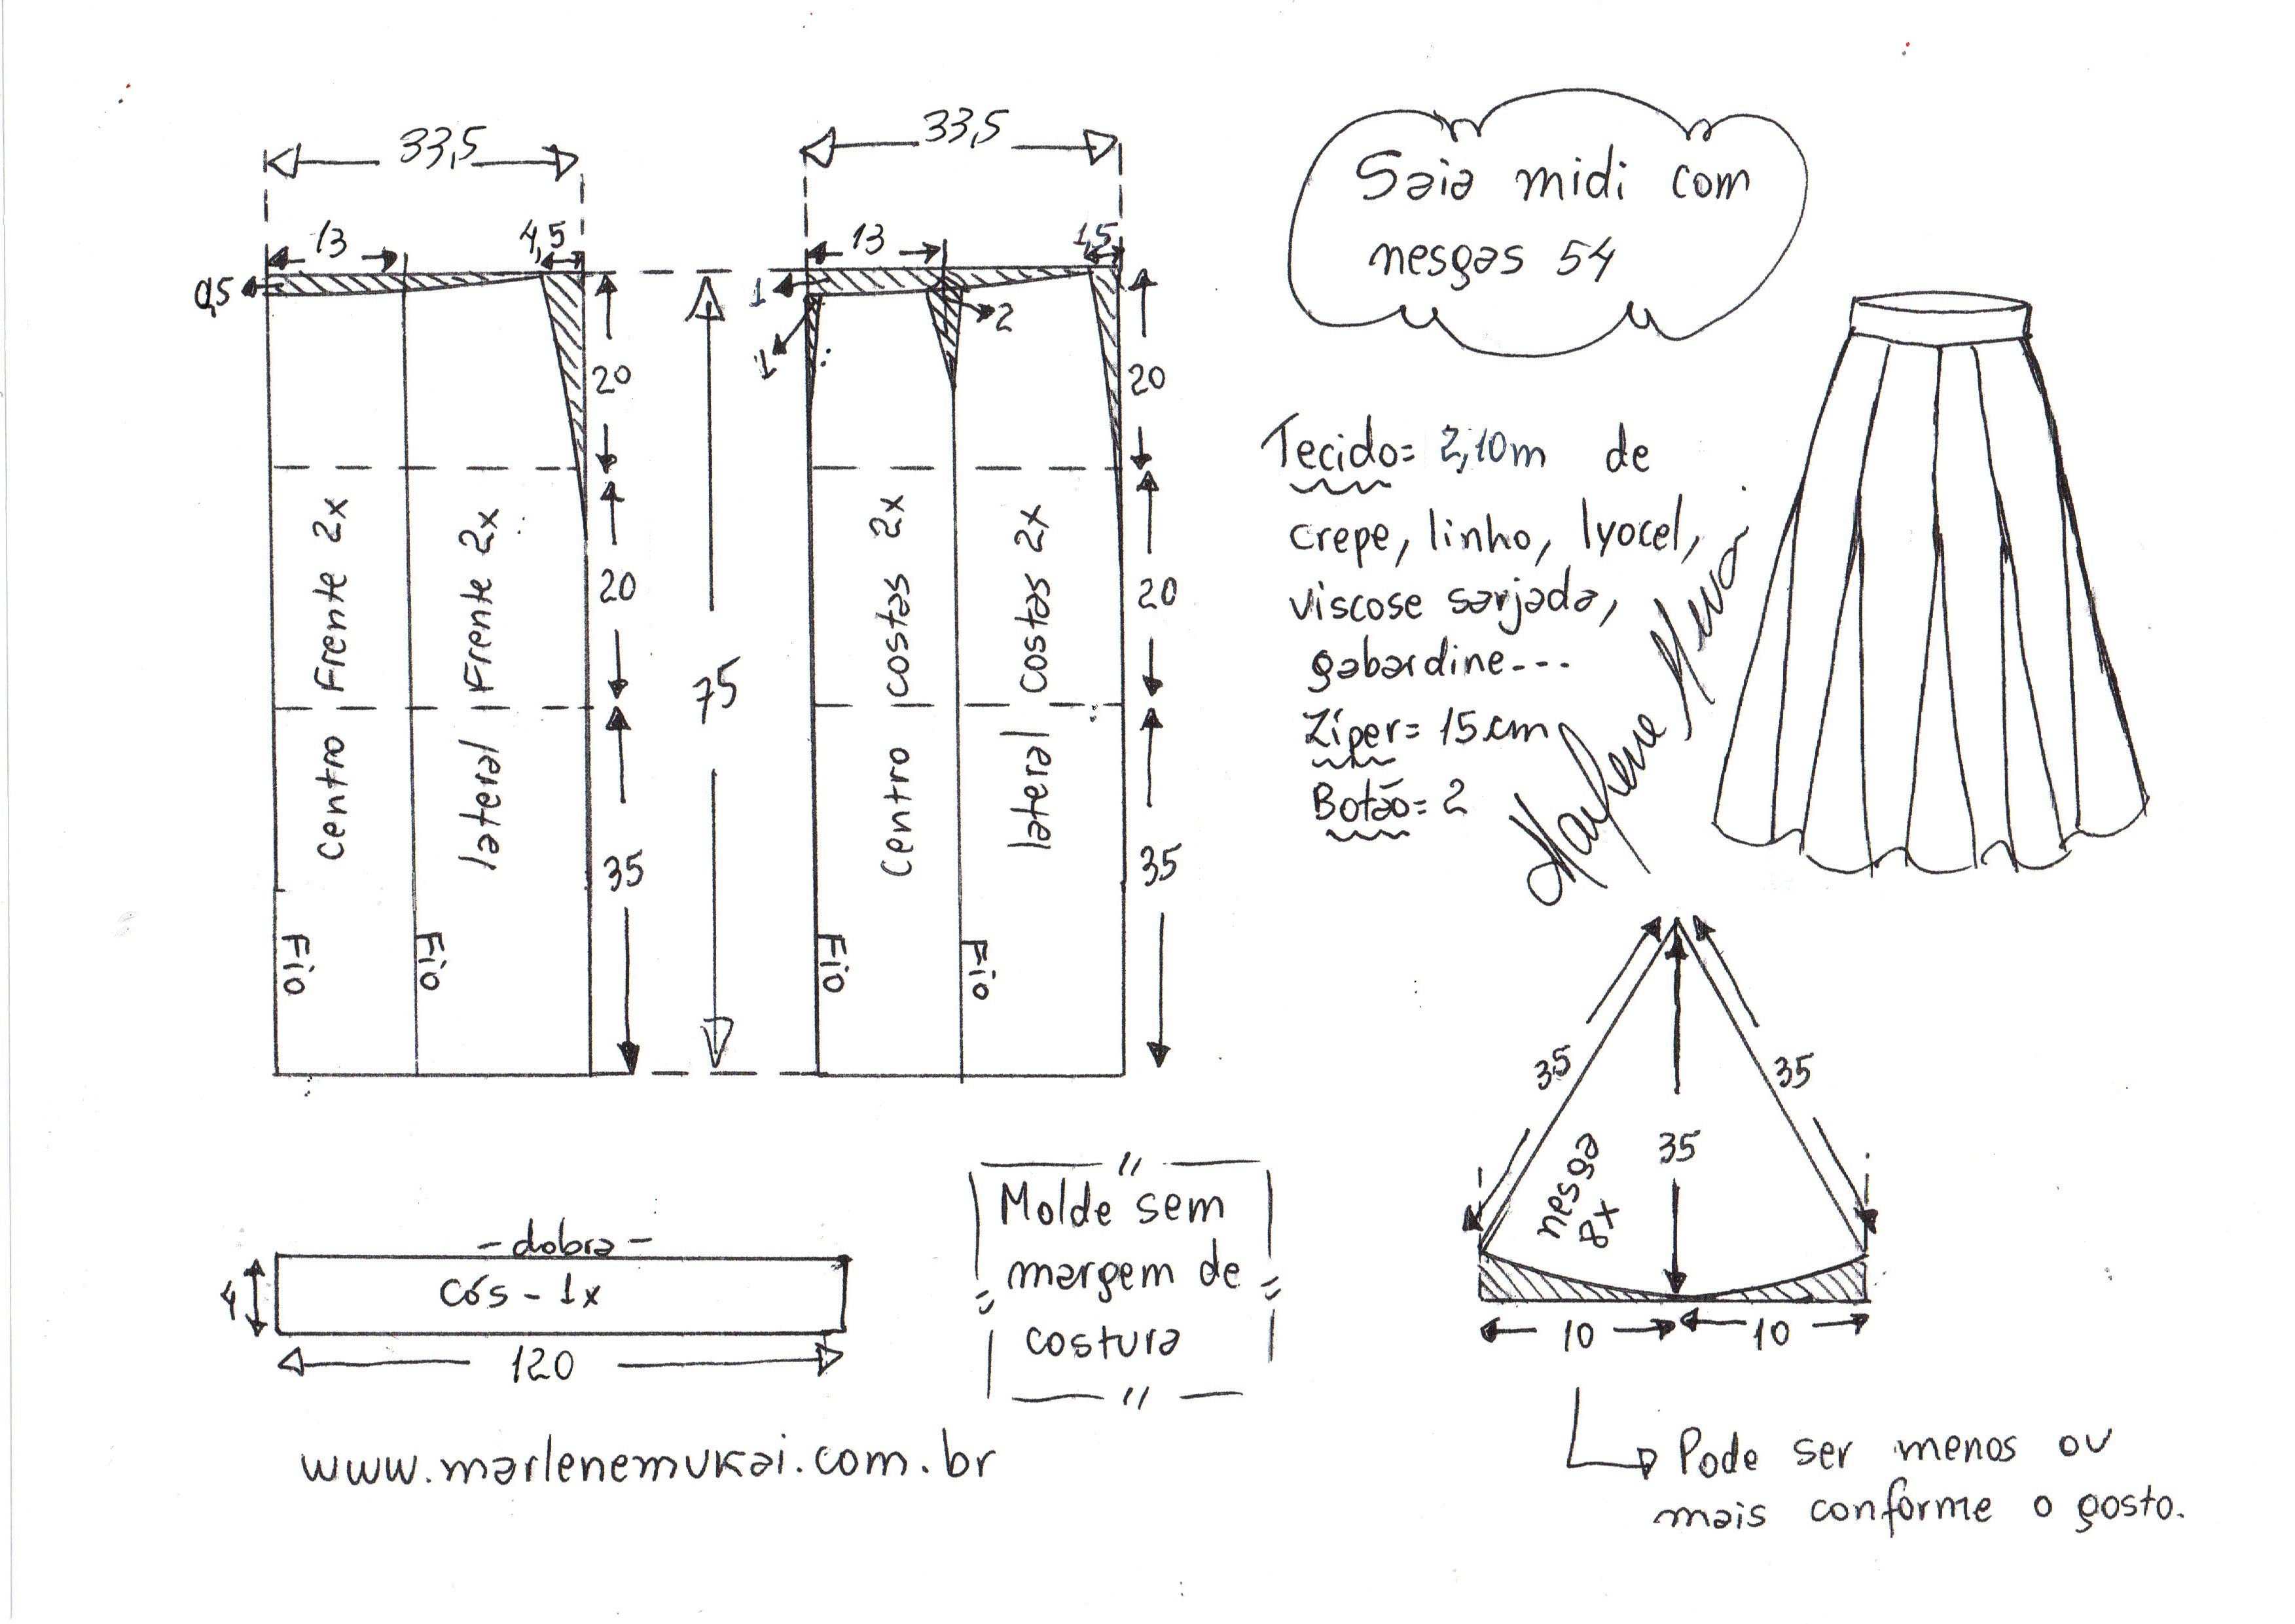 33,5
13
4,5
0,5
20
20
35
Centro Frente 2x
lateral Frente 2x
Fio
Fio
75
33,5
13
1,5
1
1
2
20
20
35
Centro costas 2x
lateral costas 2x
Fio
Fio
Saia midi com
nesgas 54
Tecido= 2,10m de
crepe, linho, lyocel,
viscose sarjada,
gabardine---
Zíper= 15cm
Botão= 2
35
35
35
nesga
8x
10
10
Pode ser menos ou
mais conforme o gosto.
-dobra-
Cós - 1x
4
120
Molde sem
margem de
costura
www.marlenemukai.com.br